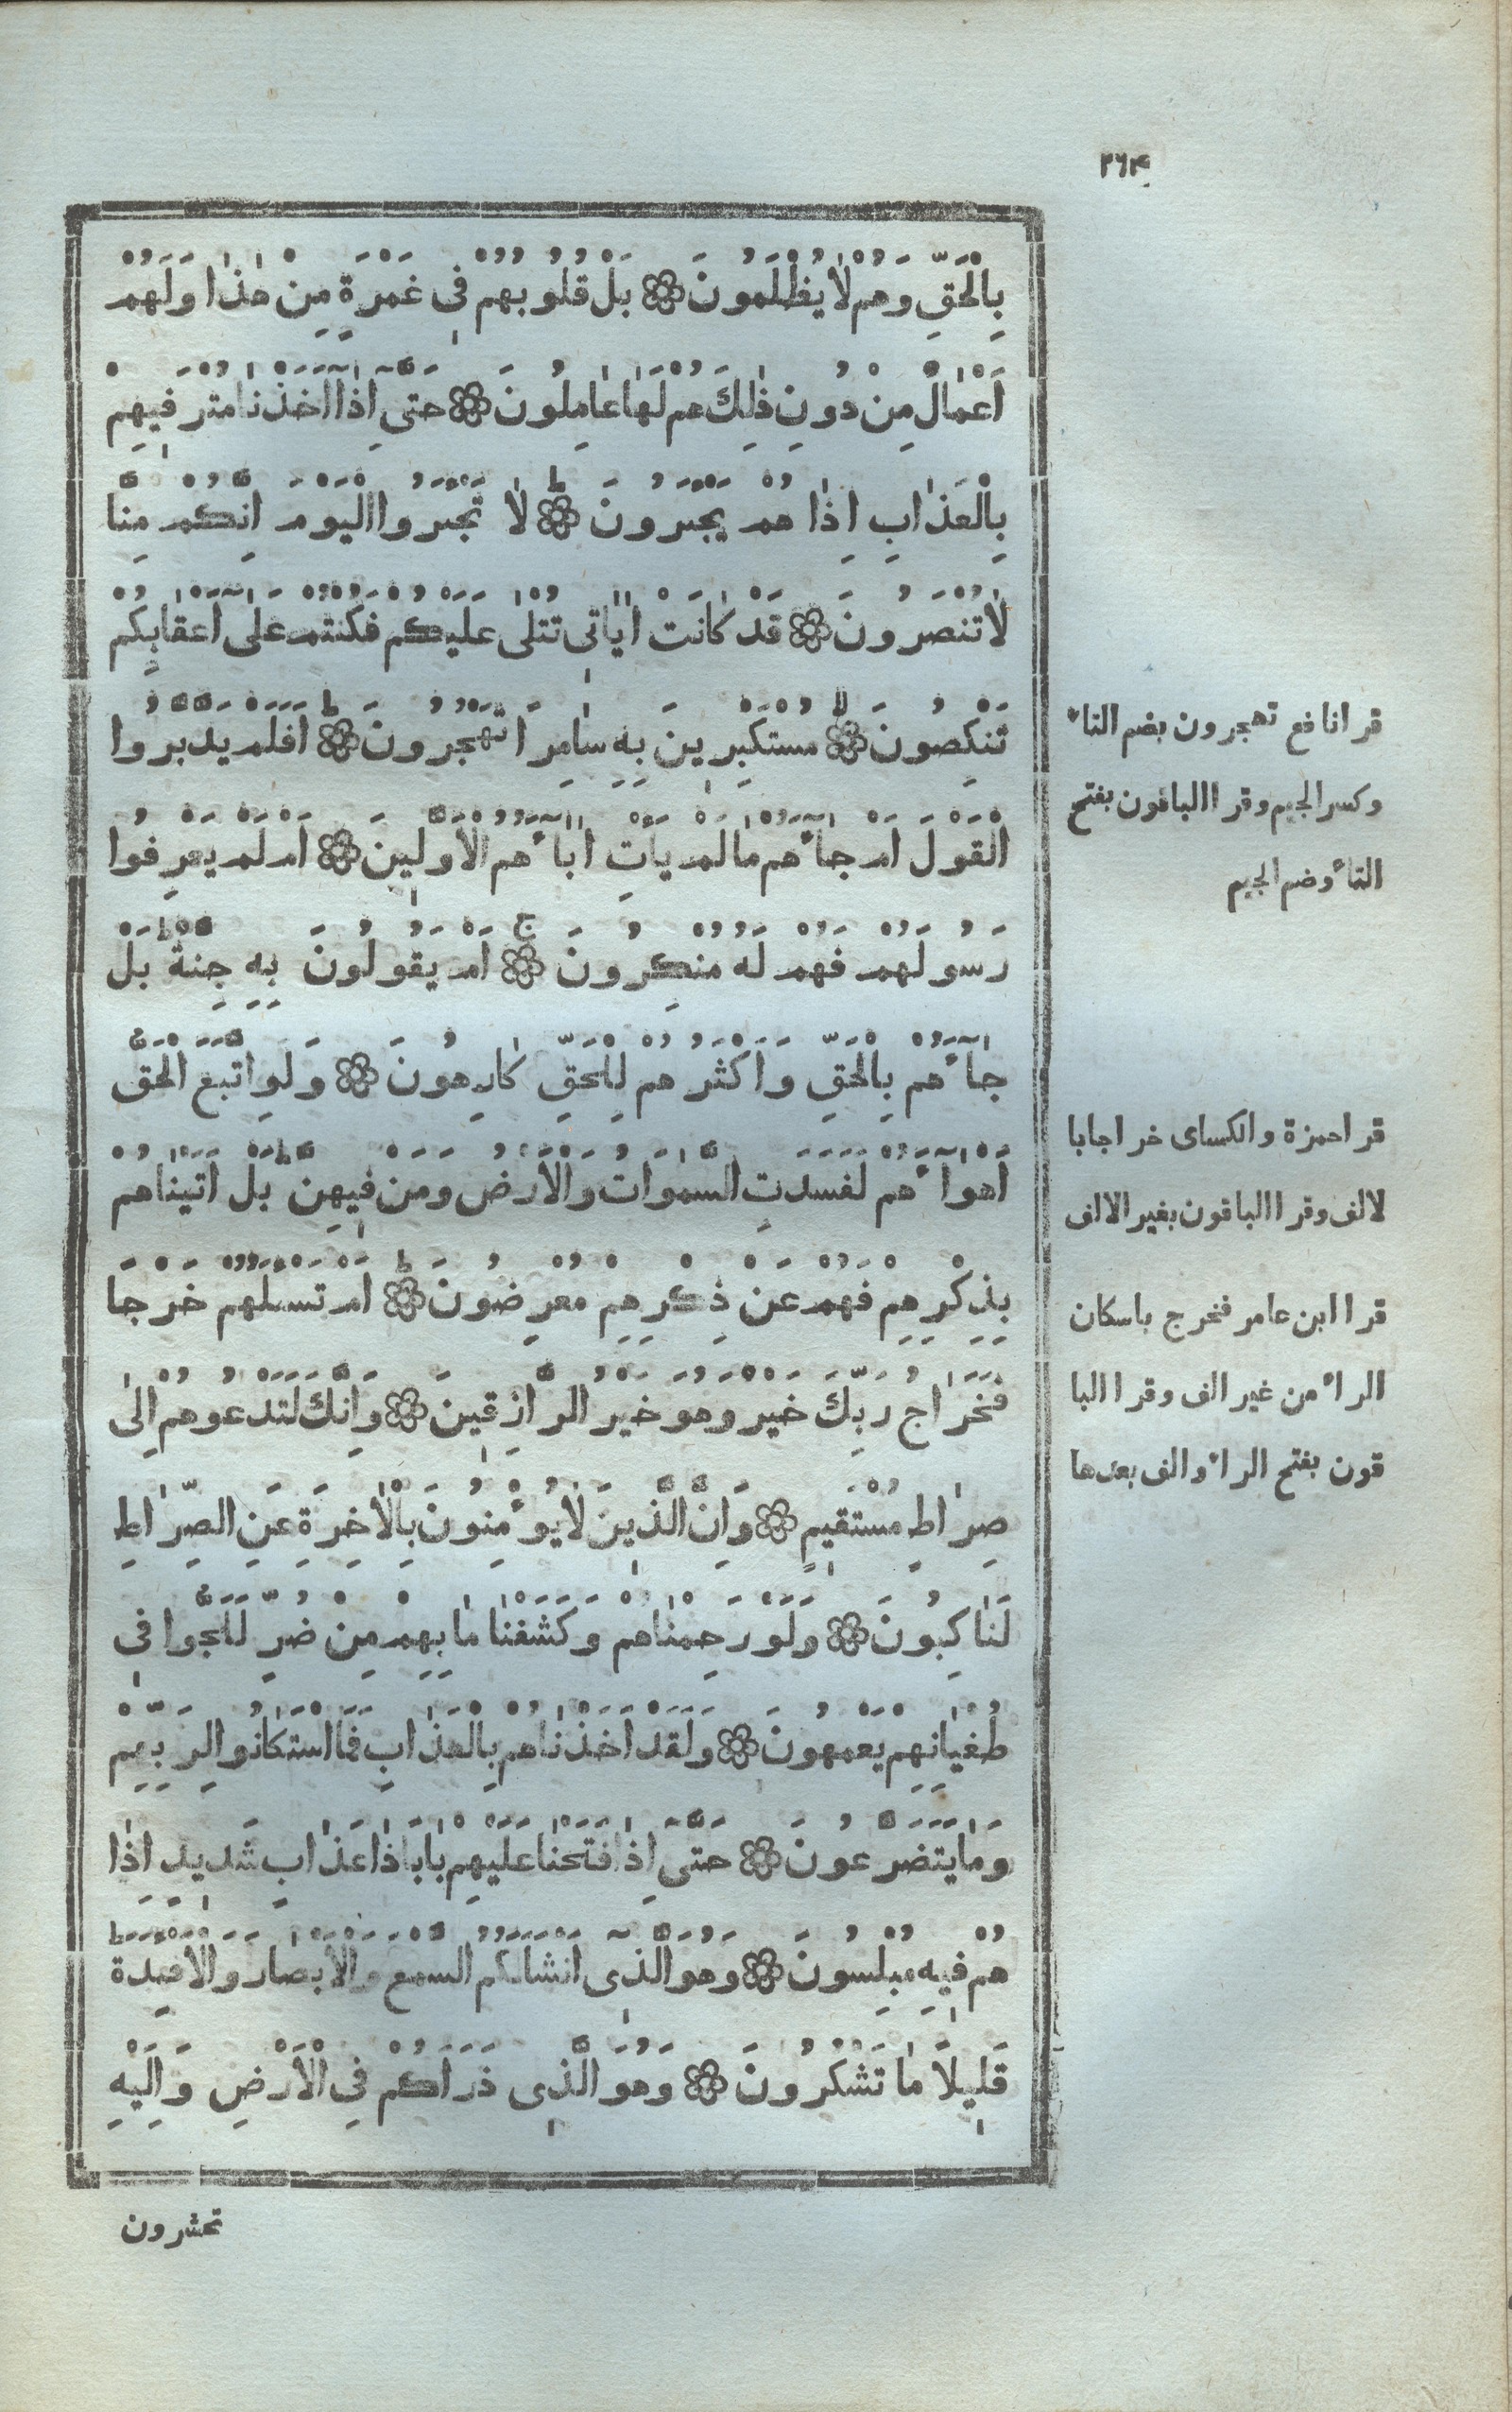 ٢٦٤
بِالْحَقِّ وَهُمْ لٰا يُظْلَمُونَ ۝ بَلْ قُلُوبُهُمْ فِى غَمْرَةٍ مِنْ هٰذٰا وَلَهُمْ
أَعْمٰالٌ مِنْ دُونِ ذٰلِكَ هُمْ لَهٰا عٰامِلُونَ ۝ حَتَّىٓ إِذٰآ أَخَذْنٰا مُتْرَفِيهِمْ
بِالْعَذٰابِ إِذٰا هُمْ يَجْئَرُونَ ۝ لٰا تَجْئَرُوا الْيَوْمَ إِنَّكُمْ مِنَّا
لٰا تُنْصَرُونَ ۝ قَدْ كٰانَتْ اٰيٰاتِى تُتْلٰى عَلَيْكُمْ فَكُنْتُمْ عَلٰٓى أَعْقٰابِكُمْ
تَنْكِصُونَ ۝ مُسْتَكْبِرِينَ بِهِ سٰامِرًا تَهْجُرُونَ ۝ أَفَلَمْ يَدَّبَّرُوا
الْقَوْلَ أَمْ جٰآءَهُمْ مٰا لَمْ يَأْتِ اٰبٰآءَهُمُ الْأَوَّلِينَ ۝ أَمْ لَمْ يَعْرِفُوا
رَسُولَهُمْ فَهُمْ لَهُ مُنْكِرُونَ ۝ أَمْ يَقُولُونَ بِهِ جِنَّةٌ بَلْ
جٰآءَهُمْ بِالْحَقِّ وَأَكْثَرُهُمْ لِلْحَقِّ كٰارِهُونَ ۝ وَلَوِ اتَّبَعَ الْحَقُّ
أَهْوٰآءَهُمْ لَفَسَدَتِ السَّمٰوَاتُ وَالْأَرْضُ وَمَنْ فِيهِنَّ بَلْ أَتَيْنٰاهُمْ
بِذِكْرِهِمْ فَهُمْ عَنْ ذِكْرِهِمْ مُعْرِضُونَ ۝ أَمْ تَسْئَلُهُمْ خَرْجًا
فَخَرٰاجُ رَبِّكَ خَيْرٌ وَهُوَ خَيْرُ الرَّازِقِينَ ۝ وَإِنَّكَ لَتَدْعُوهُمْ إِلٰى
صِرٰاطٍ مُسْتَقِيمٍ ۝ وَإِنَّ الَّذِينَ لٰا يُؤْمِنُونَ بِالْاٰخِرَةِ عَنِ الصِّرٰاطِ
لَنٰاكِبُونَ ۝ وَلَوْ رَحِمْنٰاهُمْ وَكَشَفْنٰا مٰا بِهِمْ مِنْ ضُرٍّ لَلَجُّوا فِى
طُغْيٰانِهِمْ يَعْمَهُونَ ۝ وَلَقَدْ أَخَذْنٰاهُمْ بِالْعَذٰابِ فَمَا اسْتَكٰانُوا لِرَبِّهِمْ
وَمٰا يَتَضَرَّعُونَ ۝ حَتَّىٓ إِذٰا فَتَحْنٰا عَلَيْهِمْ بٰابًا ذٰا عَذٰابٍ شَدِيدٍ إِذٰا
هُمْ فِيهِ مُبْلِسُونَ ۝ وَهُوَ الَّذِىٓ أَنْشَأَ لَكُمُ السَّمْعَ وَالْأَبْصٰارَ وَالْأَفْئِدَةَ
قَلِيلاً مٰا تَشْكُرُونَ ۝ وَهُوَ الَّذِى ذَرَأَكُمْ فِى الْأَرْضِ وَإِلَيْهِ
تحشرون
قرا نافع تهجرون بضم التاء
وكسر الجيم وقرا الباقون بفتح
التاء وضم الجيم
قرا حمزة والكساى خراجا با
لالف وقرا الباقون بغير الالف
قرا ابن عامر فخرج باسكان
الراء من غير الف وقرا البا
قون بفتح الراء والف بعدها